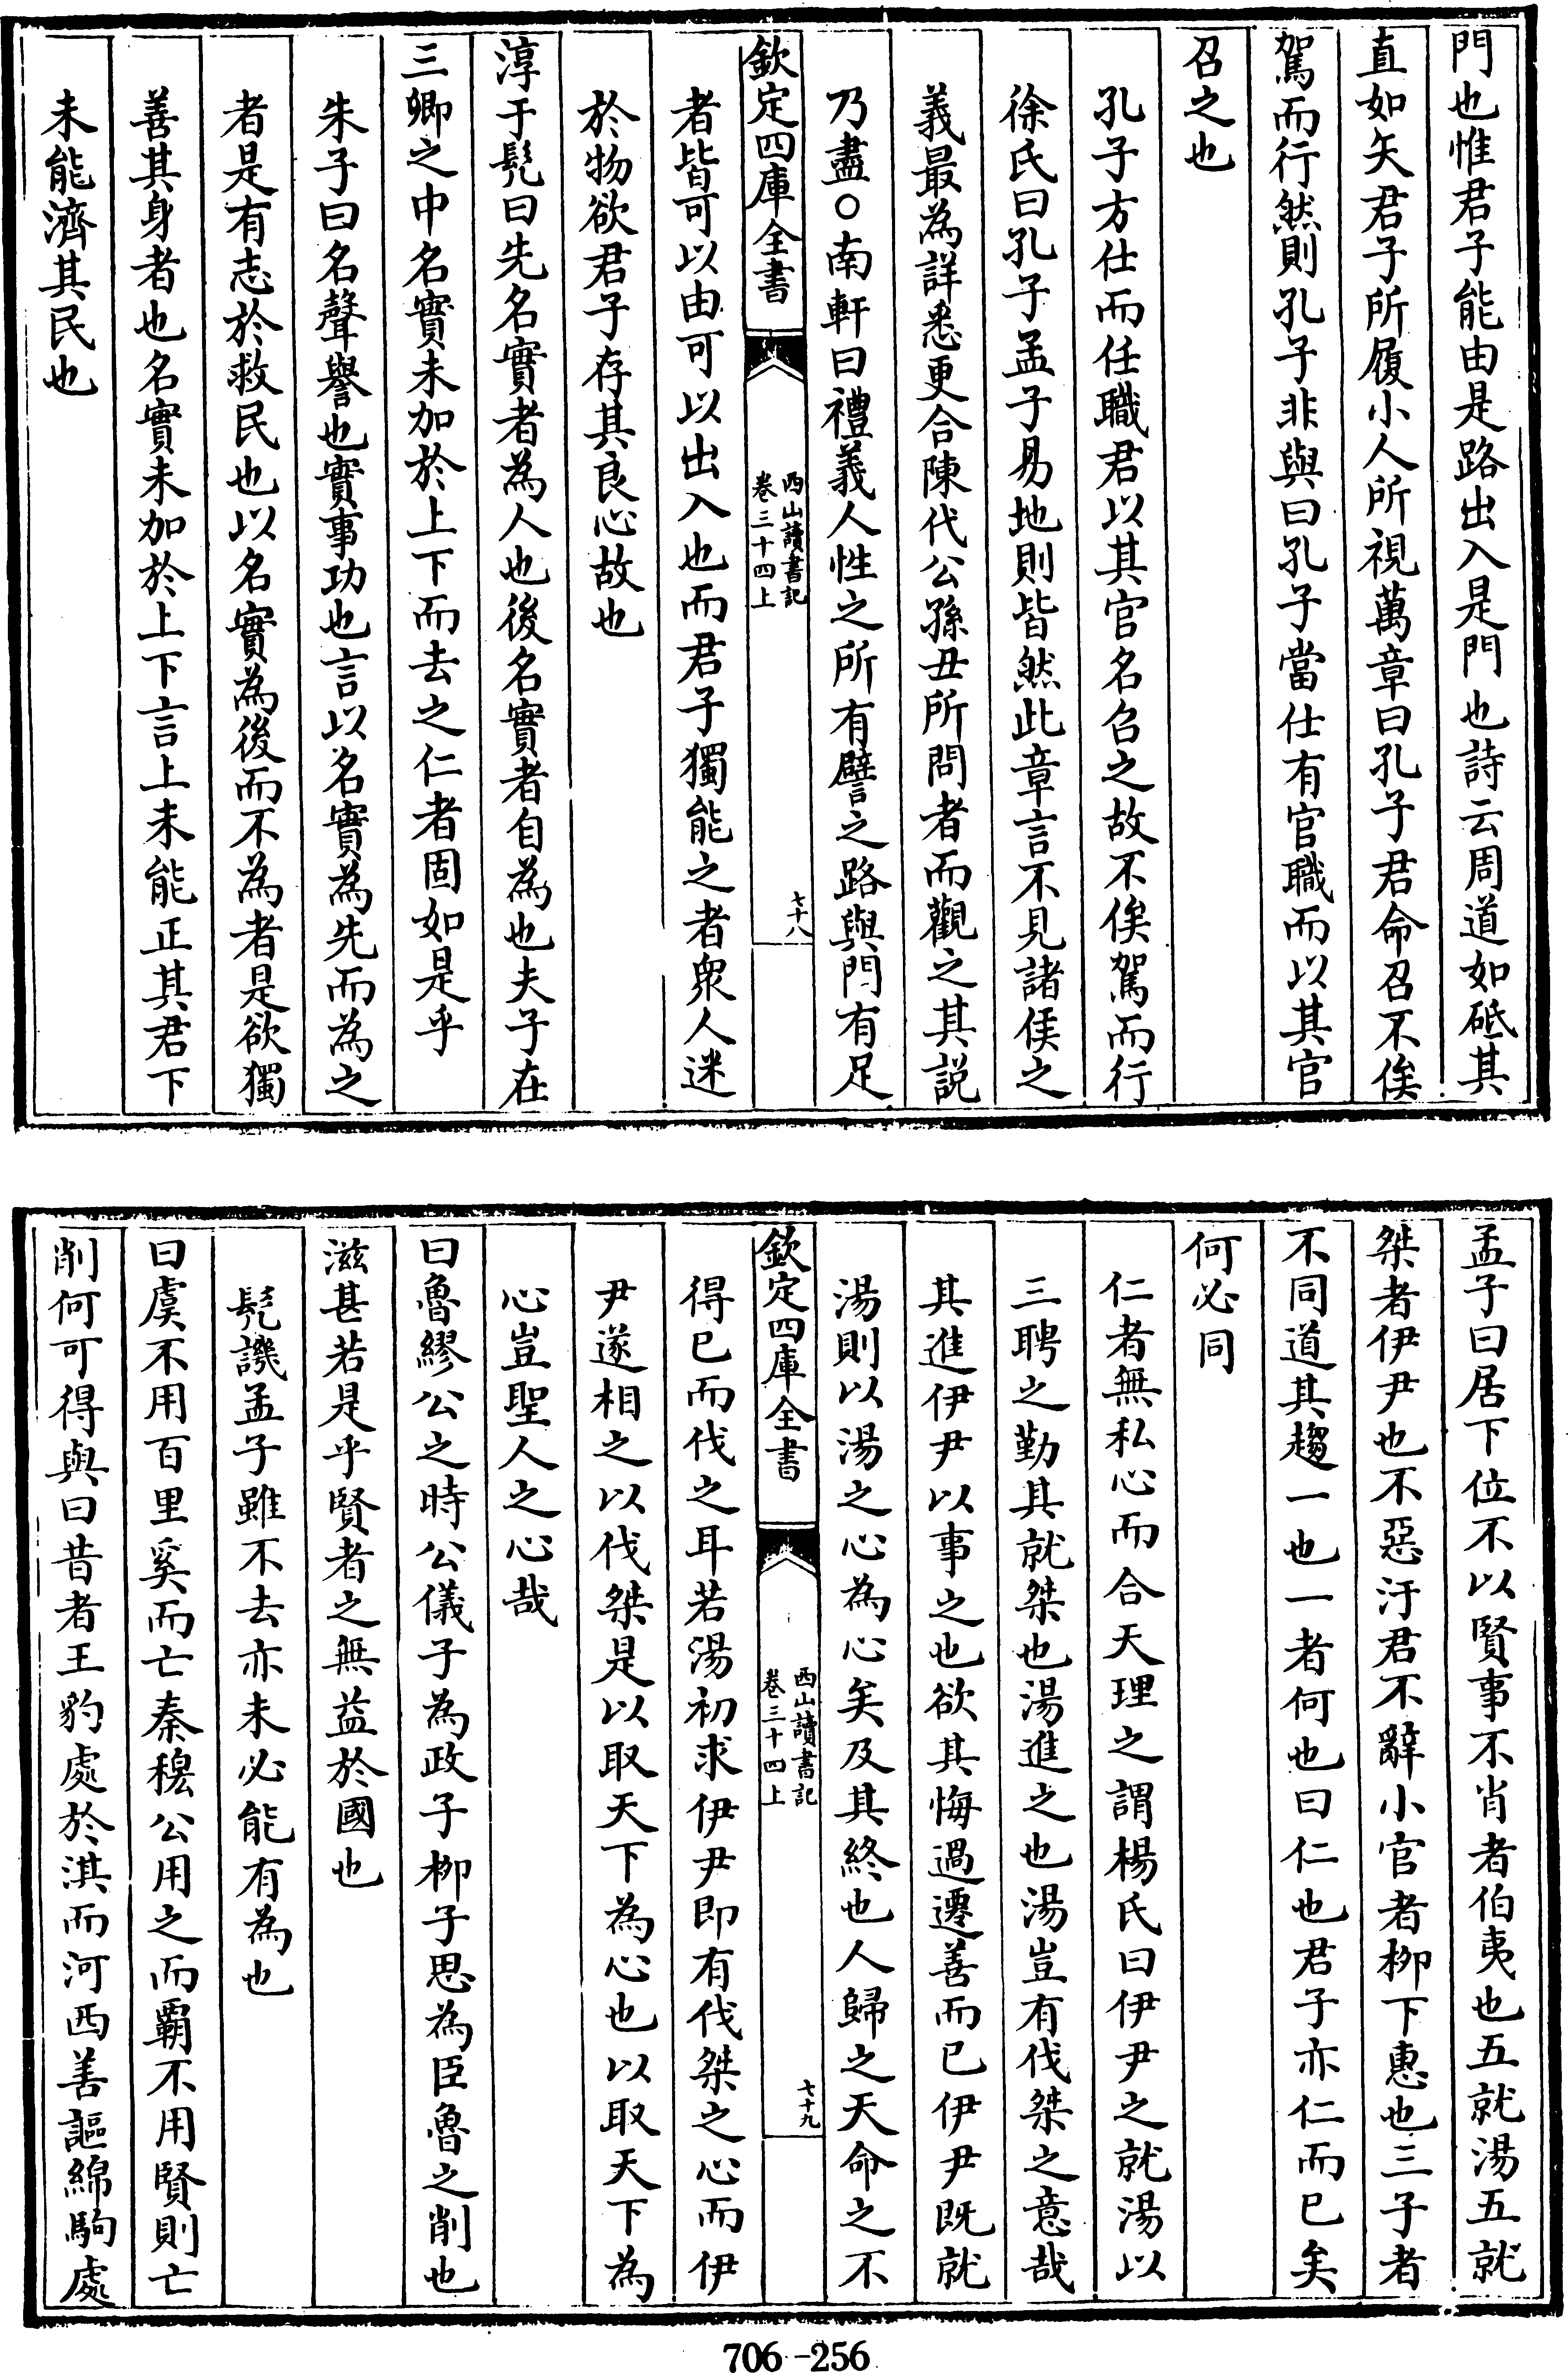 門也惟君子能由是路出入是門也詩云周道如砥其
直如矢君子所履小人所視萬章曰孔子君命召不俟
駕而行然則孔子非與曰孔子當仕有官職而以其官
召之也
孔子方仕而任職君以其官名召之故不俟駕而行
徐氏曰孔子孟子易地則皆然此章言不見諸侯之
義最為詳悉更合陳代公孫丑所問者而觀之其說
乃盡○南軒曰禮義人性之所有譬之路與門有足
欽定四庫全書
西山讀書記
卷三十四上
七十八
者皆可以由可以出入也而君子獨能之者衆人迷
於物欲君子存其良心故也
淳于髠曰先名實者為人也後名實者自為也夫子在
三卿之中名實未加於上下而去之仁者固如是乎
朱子曰名聲譽也實事功也言以名實為先而為之
者是有志於救民也以名實為後而不為者是欲獨
善其身者也名實未加於上下言上未能正其君下
未能濟其民也
孟子曰居下位不以賢事不肖者伯夷也五就湯五就
桀者伊尹也不惡汙君不辭小官者柳下惠也三子者
不同道其趨一也一者何也曰仁也君子亦仁而已矣
何必同
仁者無私心而合天理之謂楊氏曰伊尹之就湯以
三聘之勤其就桀也湯進之也湯豈有伐桀之意哉
其進伊尹以事之也欲其悔過遷善而已伊尹既就
湯則以湯之心為心矣及其終也人歸之天命之不
欽定四庫全書
西山讀書記
卷三十四上
七十九
得已而伐之耳若湯初求伊尹即有伐桀之心而伊
尹遂相之以伐桀是以取天下為心也以取天下為
心豈聖人之心哉
曰魯繆公之時公儀子為政子柳子思為臣魯之削也
滋甚若是乎賢者之無益於國也
髠譏孟子雖不去亦未必能有為也
曰虞不用百里奚而亡秦穆公用之而覇不用賢則亡
削何可得與曰昔者王豹處於淇而河西善謳綿駒處
706-256